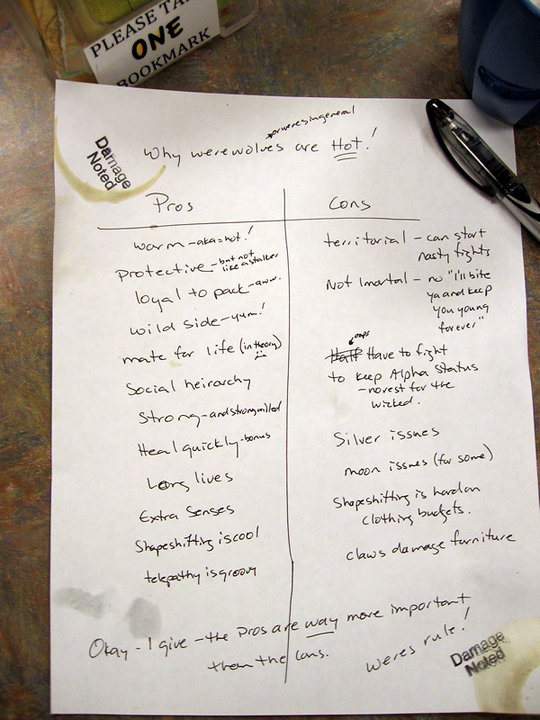 PLEASE TA
ONE
BOOKMARK
Damage
Noted
*or weres in general
Why werewolves are Hot!
Pros
Cons
warm - aka = hot!
protective - but not
like a stalker
loyal to pack - aww.
wild side - yum!
mate for life (in theory)
Social heirarchy
Strong - and strongwilled
Heal quickly - bonus
Long lives
Extra Senses
Shapeshifting is cool
telepathy is groovy
territorial - can start
nasty fights
Not Imortal - no "I'll bite
ya and keep
you young
forever"
oops
Half Have to fight
to keep Alpha Status
- no rest for the
wicked.
Silver issues
moon issues (for some)
Shapeshifting is hard on
clothing budgets.
claws damage furniture
Okay - I give - the Pros are way more important
than the Cons.
weres rule!
Damage
Noted